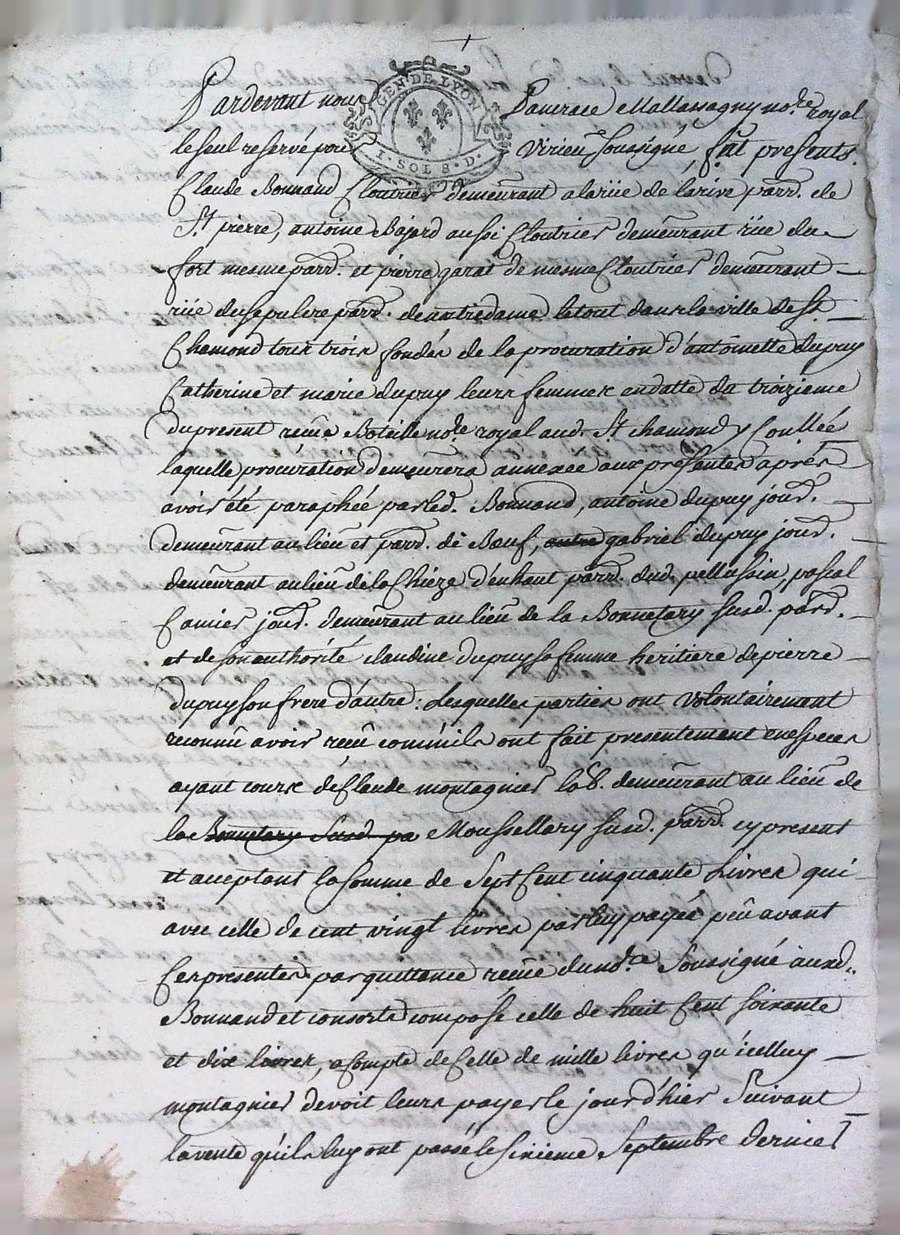 GEN. DE LYON
1. SOL 8. D.
Pardevant nous Pancrace Mallassagny no.re royal
le seul reservé pour Virieu soussigné, f.ut presents.
Claude Bonnand Cloutrier demeurant a la rüe de la rive parr. de
St. pierre, antoine Bajard aussi Cloutrier demeurant rüe du
fort mesme parr. et pierre garat de mesme Cloutrier demeurant
rüe du sepulcre parr. de nottre dame le tout dans la ville de St.
Chamond tous trois fondés de la procuration d'antoinette dupuy
Catherine et marie dupuy leurs femmes en datte du troizieme
du present reçüe Boteille no.re royal aud. St. chamond y Coullée
laquelle procuration demeurera annexée aux presentes aprés
avoir été paraphée par led. Bonnand, antoine dupuy jour.
demeurant au lieu et parr. de Bœuf, autre gabriel dupuy jour.
demeurant au lieu de la Chieze d'enhaut parr. dud. pellussin, pascal
Camier jour. demeurant au lieu de la Bonnetary susd. parr.
et de son authorité claudine dupuy sa femme heritiere de pierre
dupuy son frere d'autre: Lesquelles parties ont volontairement
reconnü avoir reçu comm'ils ont fait presentement en especes
ayant cours de Claude montagnier lab. demeurant au lieu de
la Bonnetary susd. pa Moussellery susd. parr. cy present
et acceptant la somme de Sept Cent cinquante Livres qui
avec celle de cent vingt livres par luy payée peu avant
Ces presentes par quittance reçüe dud. no.re Soussigné auxd.
Bonnand et consorts compose celle de huit Cent soixante
et dix livres, a compte de Celle de mille livres qu'icelluy
montagnier devoit leurs payer le jour d'hier Suivant
la vente qu'ils luy ont passé le sixieme Septembre dernier